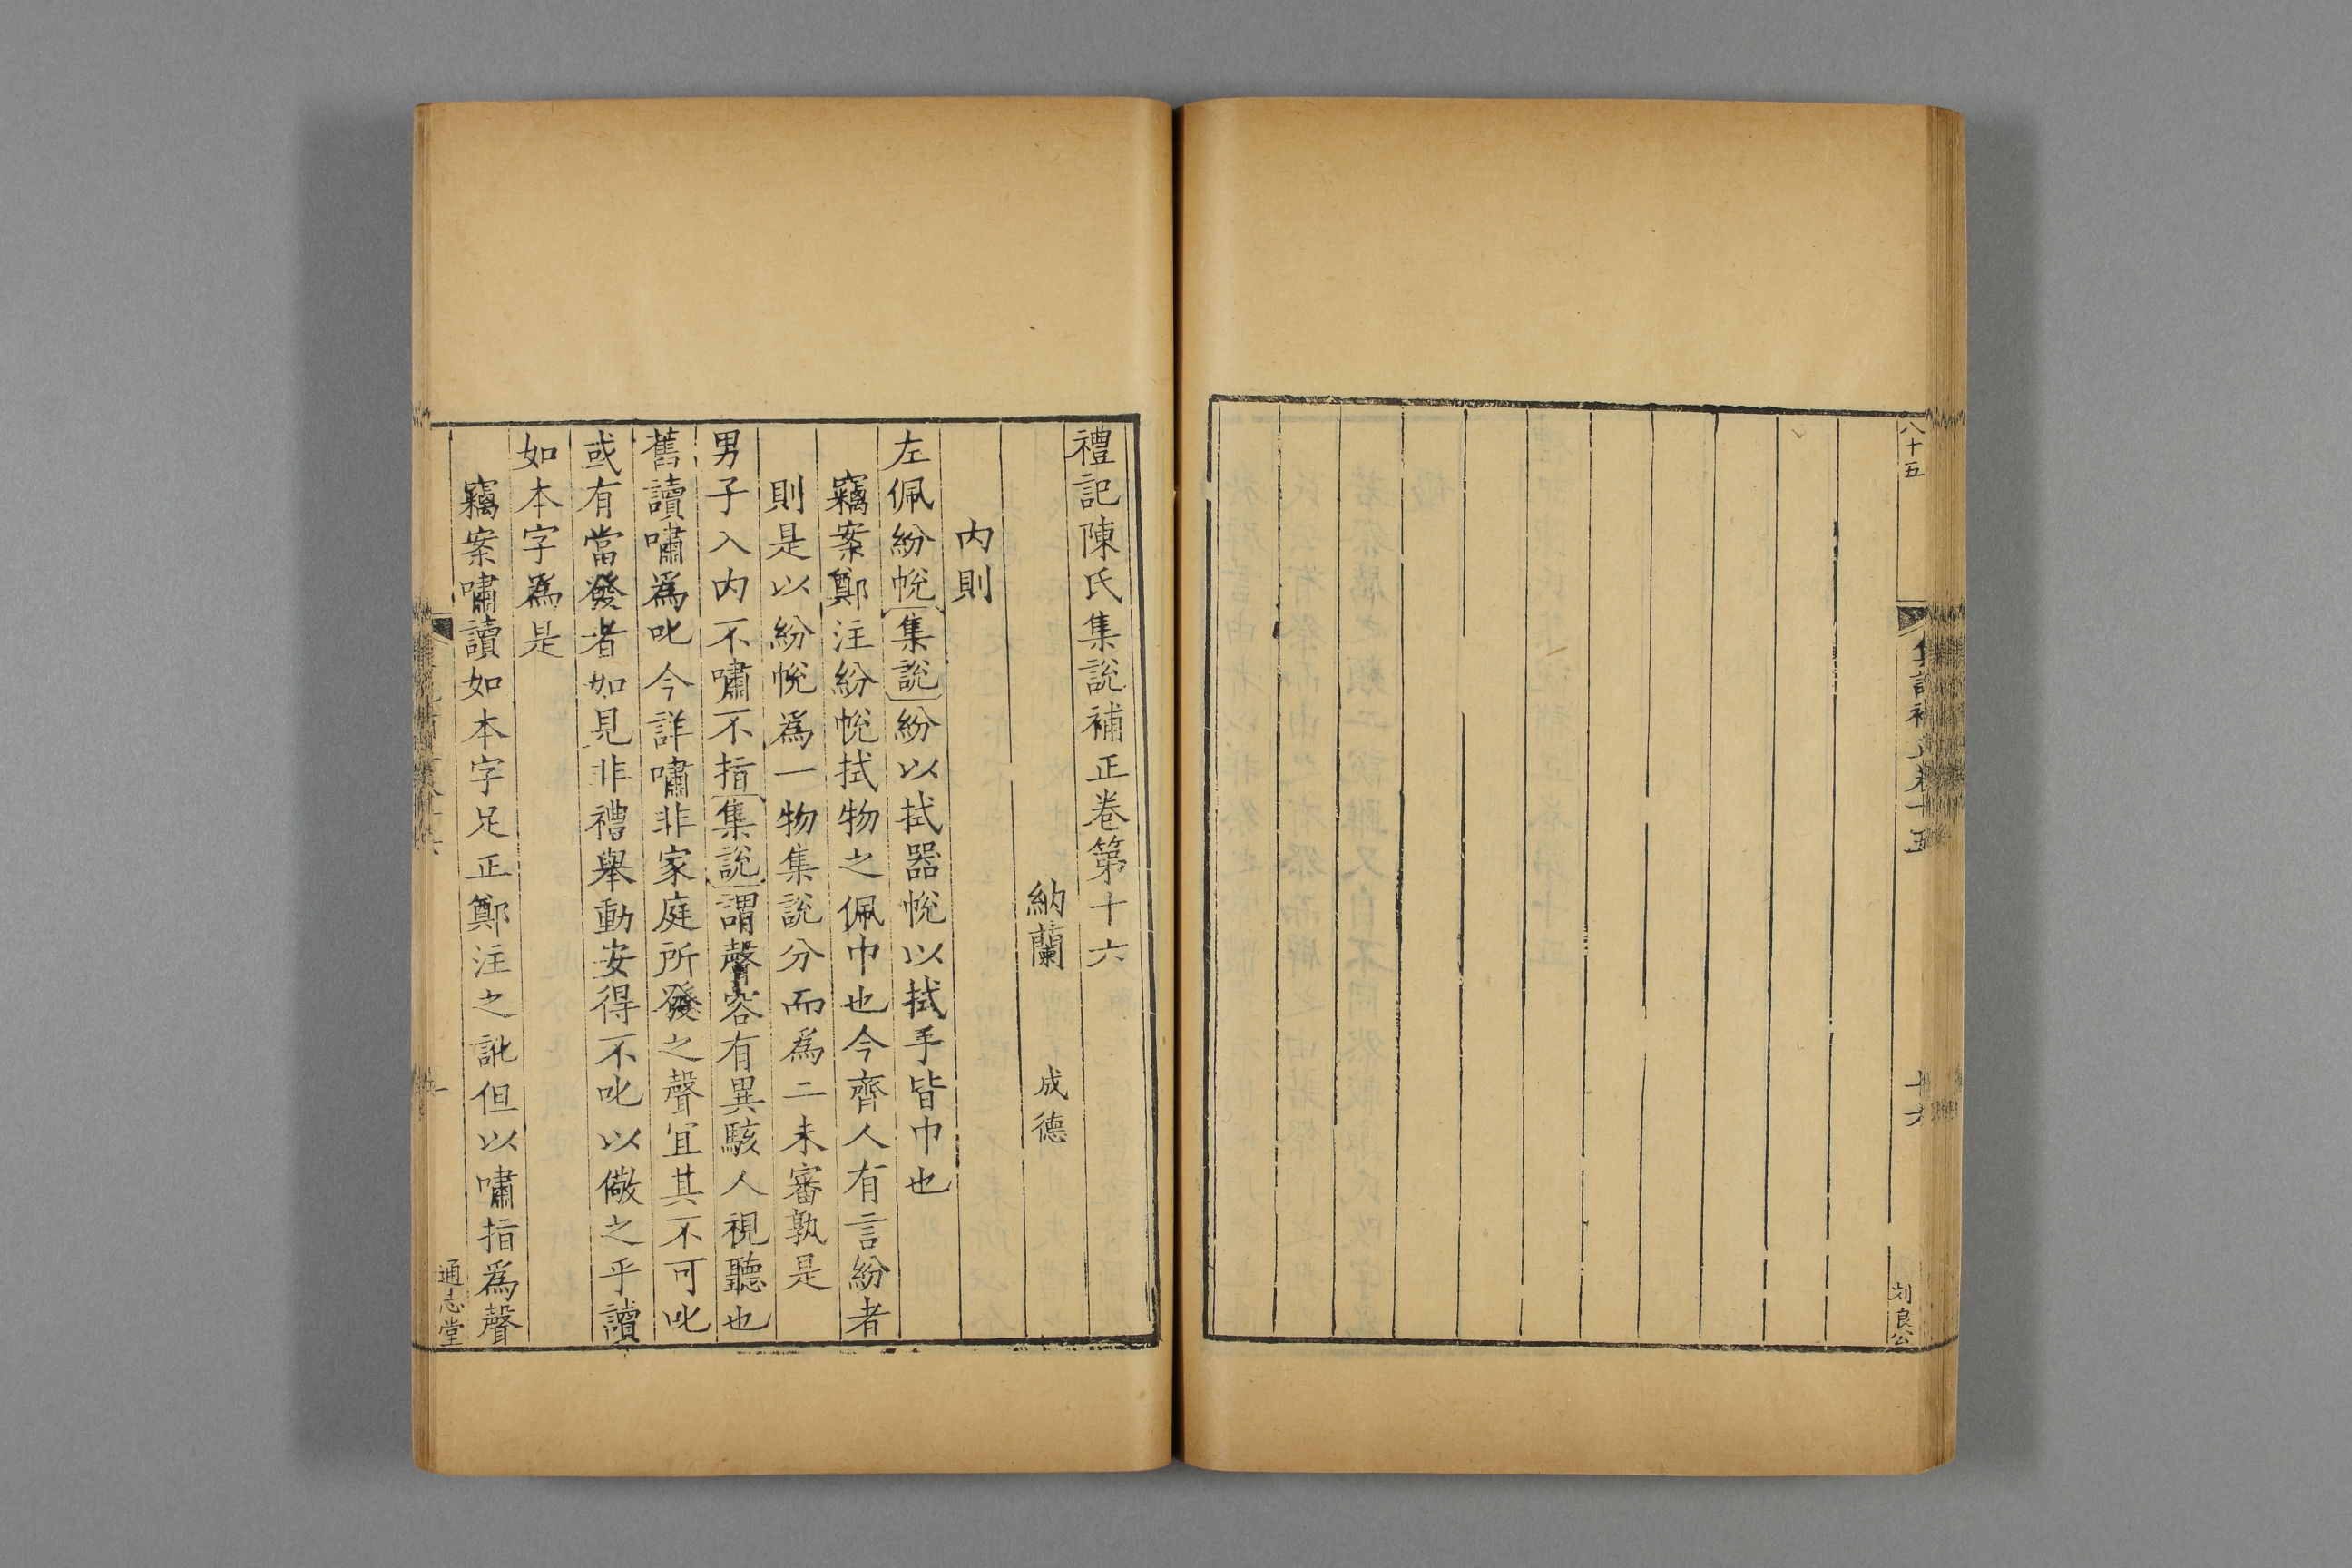 八十五
集說補正卷十五
十六
刘良公
禮記陳氏集說補正卷第十六
納蘭成德
内則
左佩紛帨集說紛以拭器帨以拭手皆巾也
竊案鄭注紛帨拭物之佩巾也今齊人有言紛者
則是以紛帨為一物集說分而為二未審孰是
男子入内不嘯不指集說謂聲容有異駭人視聽也
舊讀嘯為叱今詳嘯非家庭所發之聲宜其不可叱
或有當發者如見非禮舉動安得不叱以儆之乎讀
如本字為是
竊案嘯讀如本字足正鄭注之訛但以嘯指為聲
一
通志堂